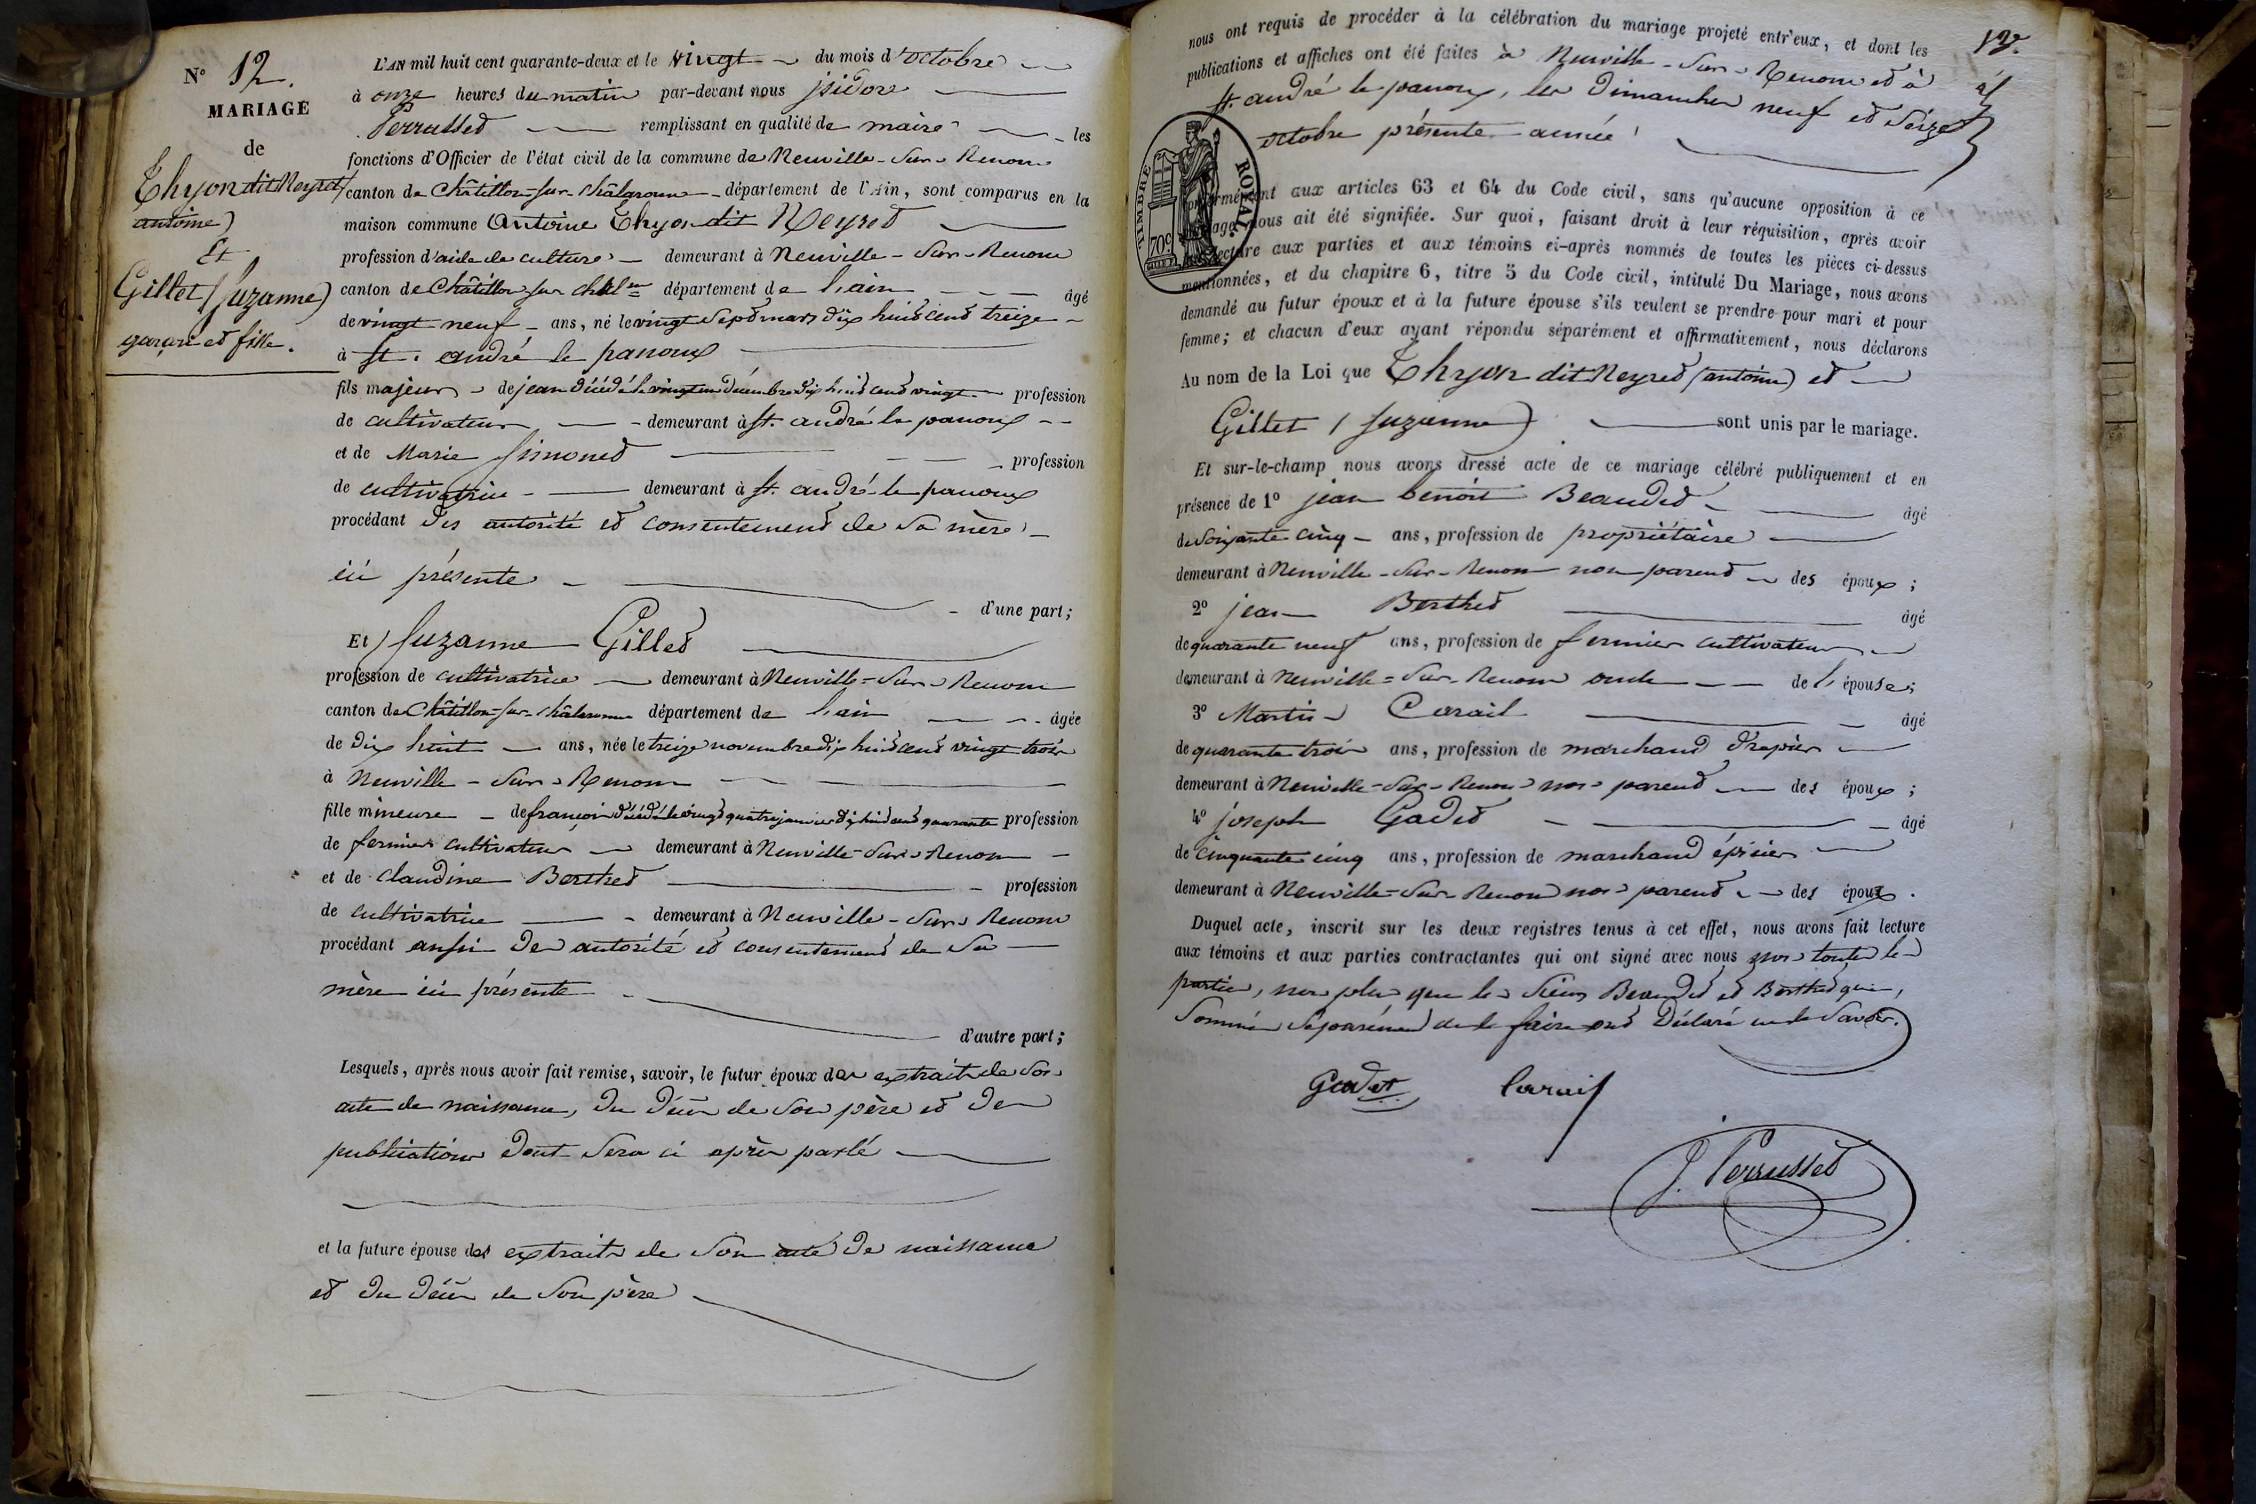 N° 12.
MARIAGE
de
Thyon dit Neyret
(antoine)
Et
Gillet (Suzanne)
garçon et fille.
L'AN mil huit cent quarante-deux et le vingt du mois d'octobre
à onze heures du matin par-devant nous jsidore
Perrusset remplissant en qualité de maire les
fonctions d'Officier de l'état civil de la commune de Neuville-Sur-Renom
canton de Châtillon-sur-Châlaronne département de l'Ain, sont comparus en la
maison commune Antoine Thyon dit Neyret
profession d'aide de culture demeurant à Neuville-Sur-Renom
canton de Châtillon sur Chalne département de l'ain âgé
de vingt neuf ans, né le vingt Sept mars dix huit cent treize
à St. andré le panoux
fils majeur de jean décédé le vingt un décembre dix huit cent vingt profession
de cultivateur demeurant à St. andré le panoux
et de Marie Simonet profession
de cultivatrice demeurant à St. andré-le panoux
procédant des autorité et consentement de Sa mère
ici présente
d'une part;
Et Suzanne Gillet
profession de cultivatrice demeurant à Neuville-Sur-Renom
canton de Châtillon-sur-Châlaronne département de l'ain âgée
de Dix huit ans, née le treize novembre dix huit cent vingt trois
à Neuville-Sur-Renom
fille mineure de françois décédé le vingt quatre janvier dix huit cent quarante profession
de fermier cultivateur demeurant à Neuville-Sur-Renom
et de claudine Berthet profession
de cultivatrice demeurant à Neuville-Sur-Renom
procédant aussi Des autorité et consentement de Sa
mère ici présente
d'autre part;
Lesquels, après nous avoir fait remise, savoir, le futur époux des extraits de Son
acte de naissance, Du Décès de Son père et Des
publications Dont Sera ci après parlé
et la future épouse des extraits de Son acte De naissance
et Du Décès de Son père
12.
nous ont requis de procéder à la célébration du mariage projeté entr'eux, et dont les
publications et affiches ont été faites à Neuville-Sur-Renom et à
St. andré le panoux, les Dimanches neuf et Seize
octobre présente année
TIMBRE ROYAL
70c
conformément aux articles 63 et 64 du Code civil, sans qu'aucune opposition à ce
mariage nous ait été signifiée. Sur quoi, faisant droit à leur réquisition, après avoir
lecture aux parties et aux témoins ci-après nommés de toutes les pièces ci-dessus
mentionnées, et du chapitre 6, titre 5 du Code civil, intitulé Du Mariage, nous avons
demandé au futur époux et à la future épouse s'ils veulent se prendre pour mari et pour
femme; et chacun d'eux ayant répondu séparément et affirmativement, nous déclarons
Au nom de la Loi que Thyon dit Neyret (antoine) et
Gillet (Suzanne) sont unis par le mariage.
Et sur-le-champ nous avons dressé acte de ce mariage célébré publiquement et en
présence de 1° jean benoit Beaudet âgé
de Soixante cinq ans, profession de propriétaire
demeurant à Neuville-Sur-Renom non parent des époux;
2° jean Berthet âgé
de quarante neuf ans, profession de fermier cultivateur
demeurant à Neuville-Sur-Renom oncle de l'épouse;
3° Martin Corail âgé
de quarante trois ans, profession de marchand Drapier
demeurant à Neuville-Sur-Renom non parent des époux;
4° joseph Gadet âgé
de cinquante cinq ans, profession de marchand épicier
demeurant à Neuville-Sur-Renom non parent des époux.
Duquel acte, inscrit sur les deux registres tenus à cet effet, nous avons fait lecture
aux témoins et aux parties contractantes qui ont signé avec nous non toutes les
parties, non plus que les Sieurs Beaudet et Berthet qui,
Sommés Séparément de le faire ont Déclaré ne le Savoir.
Gadet Corail
J. Perrusset